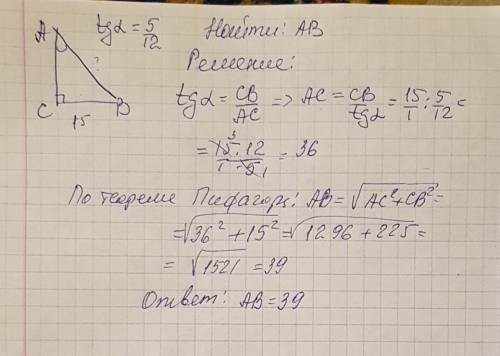 A tgα = 5/12 Найти: AB
?
Решение:
C 15 B
tgα = CB/AC => AC = CB/tgα = 15/1 : 5/12 =
= 15 3 · 12 / 1 · 5 1 = 36
По теореме Пифагора: AB = √AC²+CB² =
= √36² + 15² = √1296 + 225 =
= √1521 = 39
Ответ: AB = 39